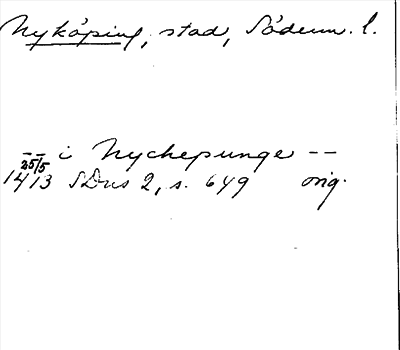 Nyköping, stad, Söderm. l.
-- i Nychepunge --
25/5
1413 SDns 2, s. 649 orig.